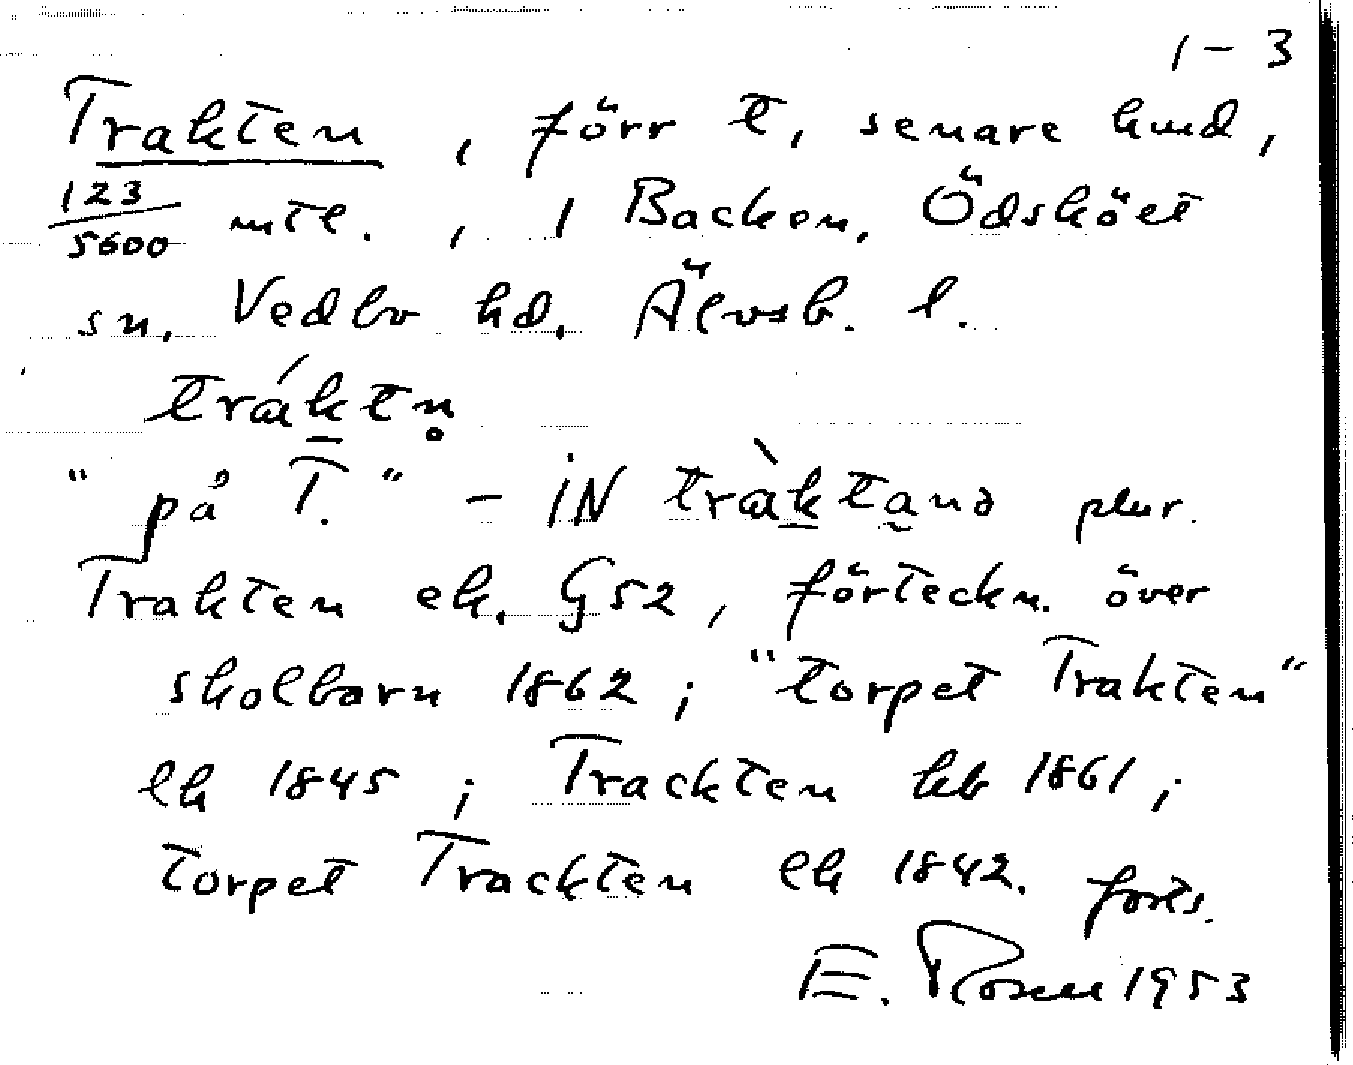 1-3
Trakten, förr t, senare hmd,
123/5600 mtl., 1 Backen, Ödsköet
sn. Vedbo hd. Älvsb. l.
tráktn̥
"på T." - IN tràktanə plur.
Trakten ek. G52, förteckn. över
skolbarn 1862; "torpet Trakten"
lh 1845; Trackten hb 1861;
torpet Trackten lh 1842. forts.
E. Rosen 1953